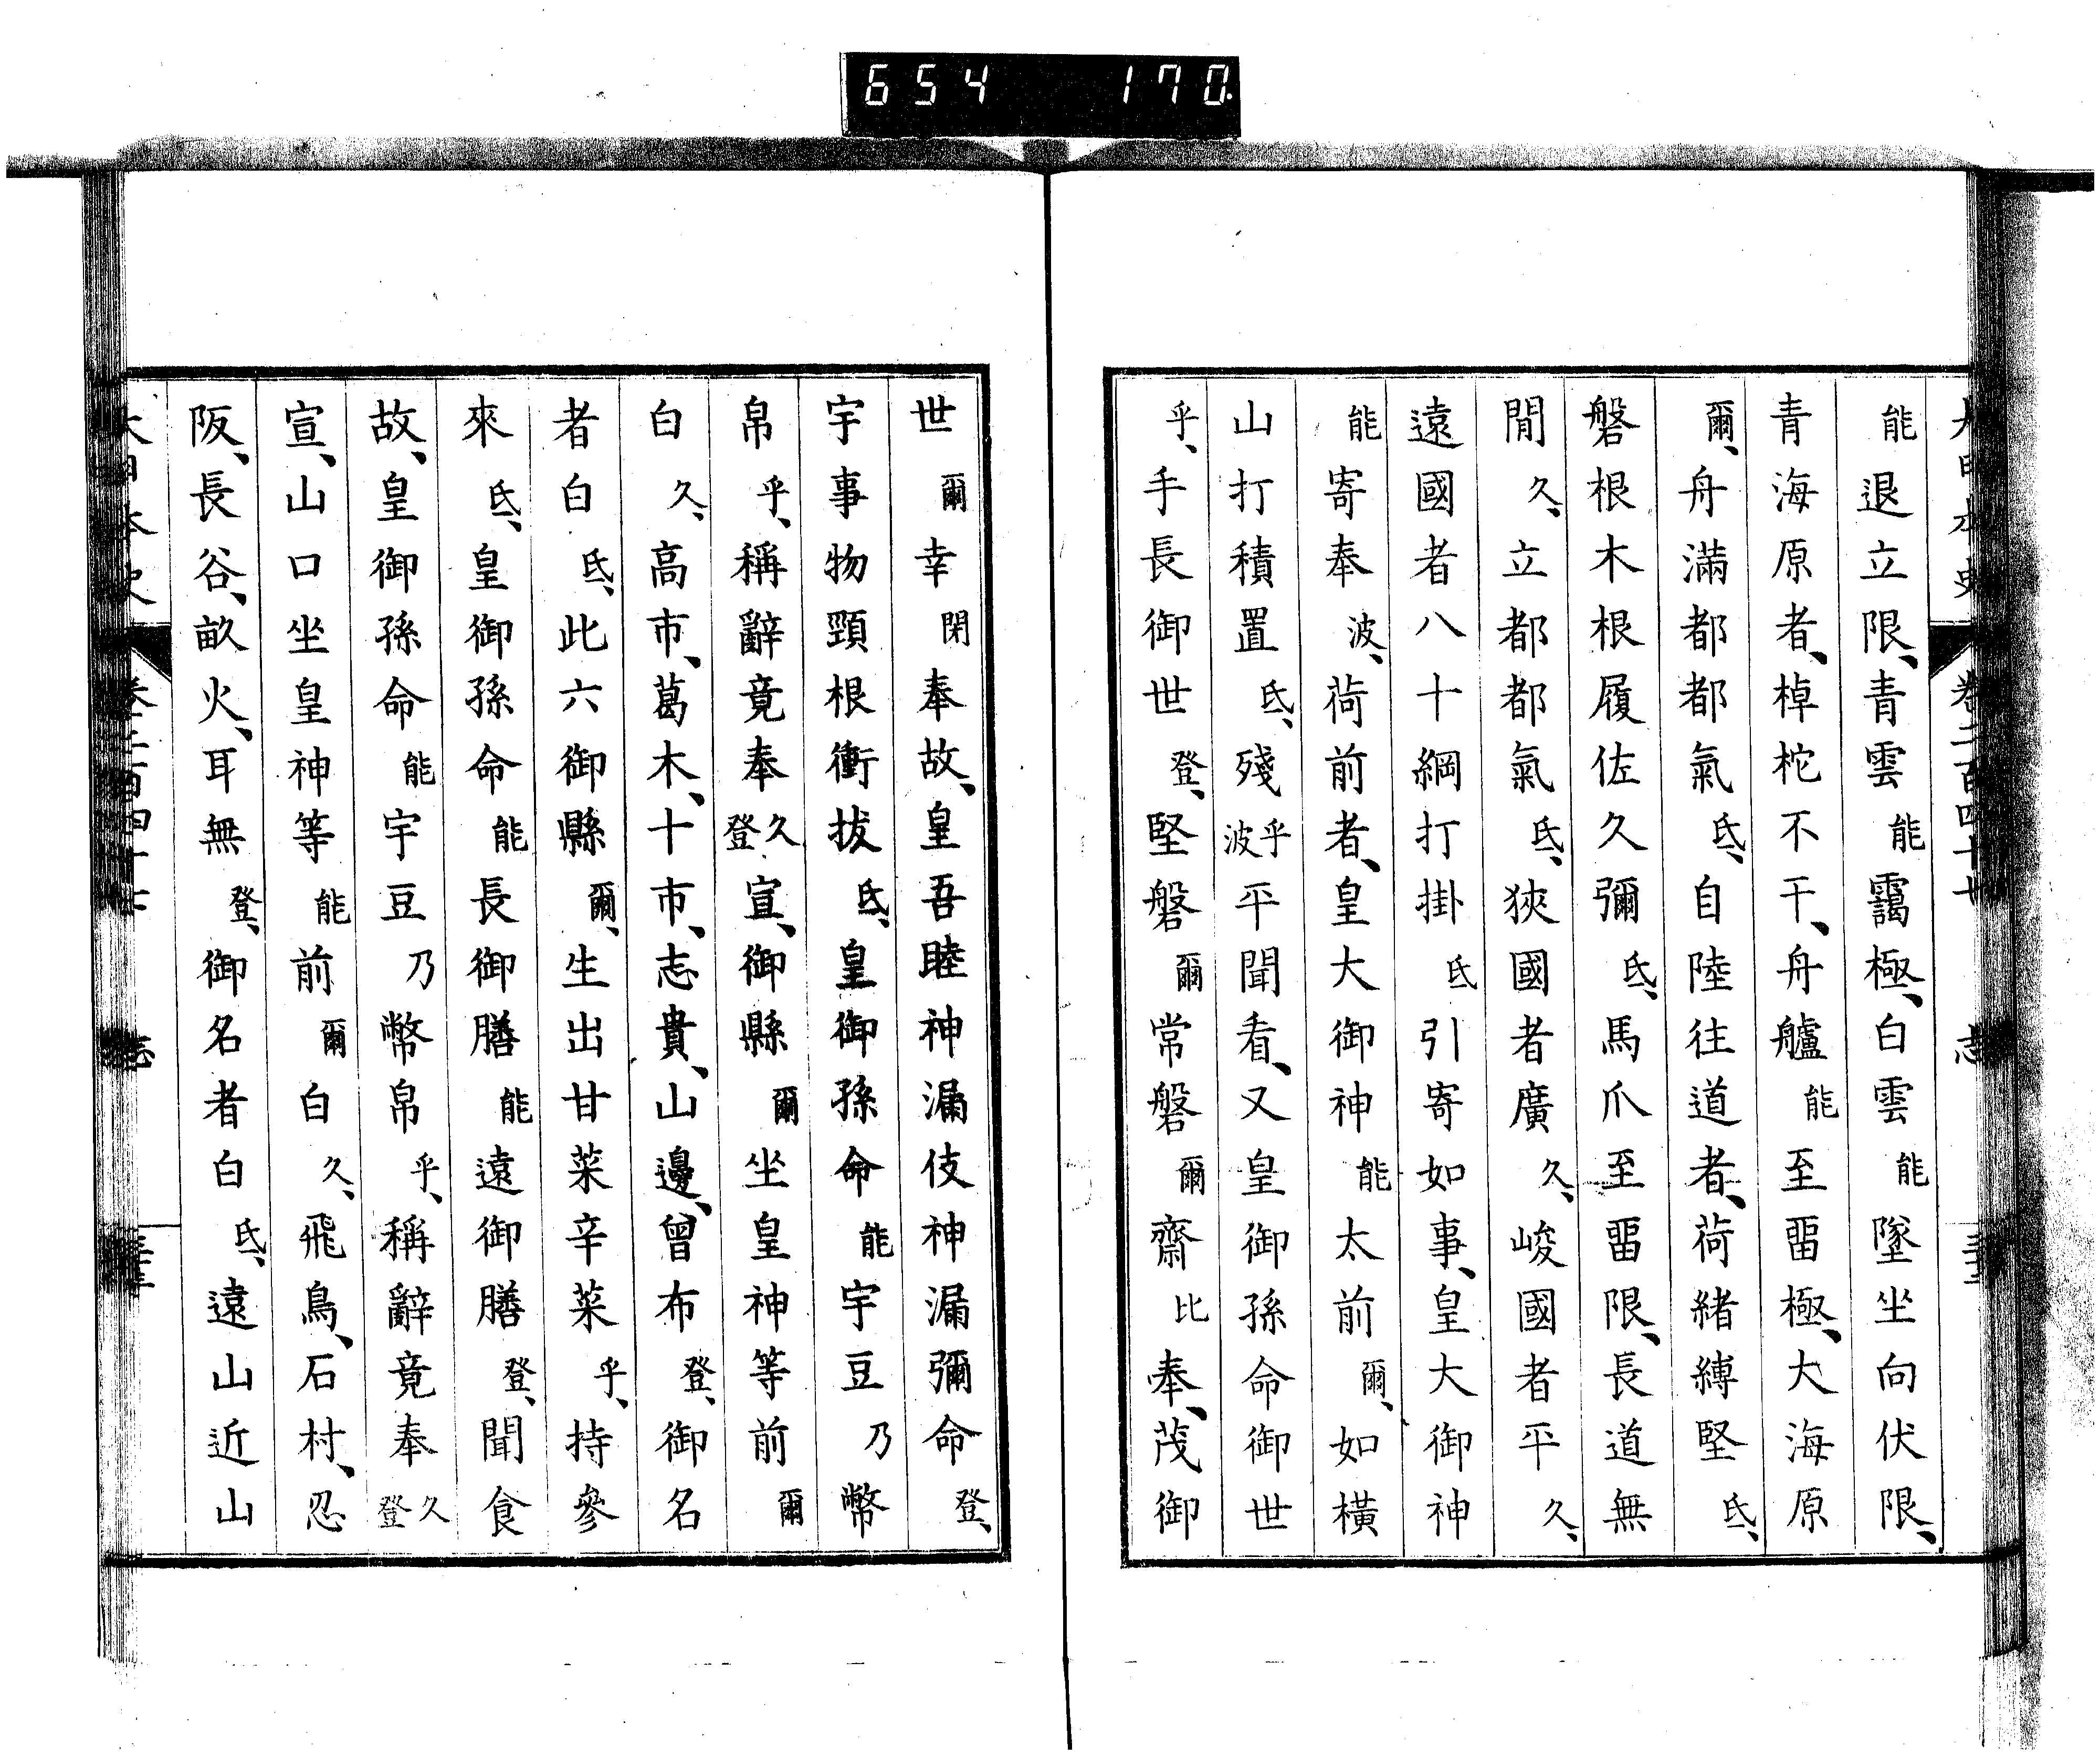 654 170
大日本史 卷二百四十七 志
能退立限、青雲能靄極、白雲能墜坐向伏限、
青海原者、棹柁不干、舟艫能至畱極、大海原
爾、舟滿都都氣氐、自陸往道者、荷緒縛堅氐、
磐根木根履佐久彌氐、馬爪至畱限、長道無
閒久、立都都氣氐、狹國者廣久、峻國者平久、
遠國者八十綱打掛氐引寄如事、皇大御神
能寄奉波、荷前者、皇大御神能太前爾、如橫
山打積置氐、殘乎波平聞看、又皇御孫命御世
乎、手長御世登、堅磐爾常磐爾齋比奉、茂御
世爾幸閇奉故、皇吾睦神漏伎神漏彌命登、
宇事物頸根衝拔氐、皇御孫命能宇豆乃幣
帛乎、稱辭竟奉久登宣、御縣爾坐皇神等前爾
白久、高市、葛木、十市、志貴、山邊、曾布登、御名
者白氐、此六御縣爾、生出甘菜辛菜乎、持參
來氐、皇御孫命能長御膳能遠御膳登、聞食
故、皇御孫命能宇豆乃幣帛乎、稱辭竟奉久登
宣、山口坐皇神等能前爾白久、飛鳥、石村、忍
阪、長谷、畝火、耳無登、御名者白氐、遠山近山
大日本史 卷二百四十七 志